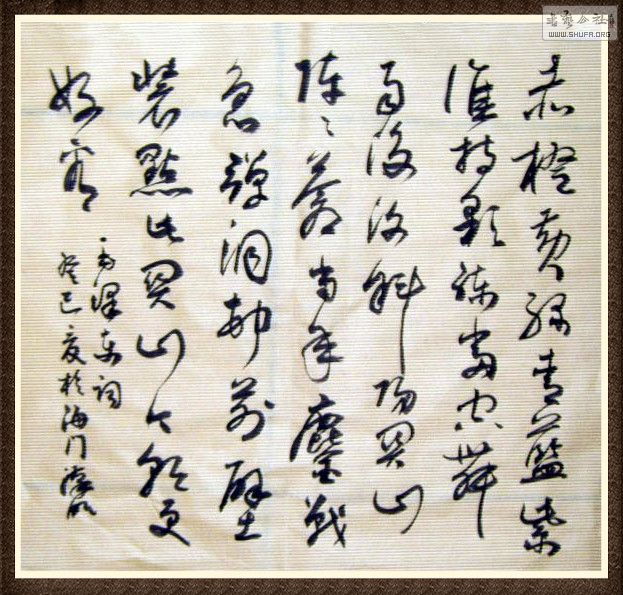 書藝公社
WWW.SHUFA.ORG
赤橙黃綠青藍紫
誰持彩練當空舞
雨後復斜陽關山
陣々蒼當年鏖戰
急彈洞邨前壁
裝點此關山今朝更
好看
毛澤東詞
癸巳夏於海門